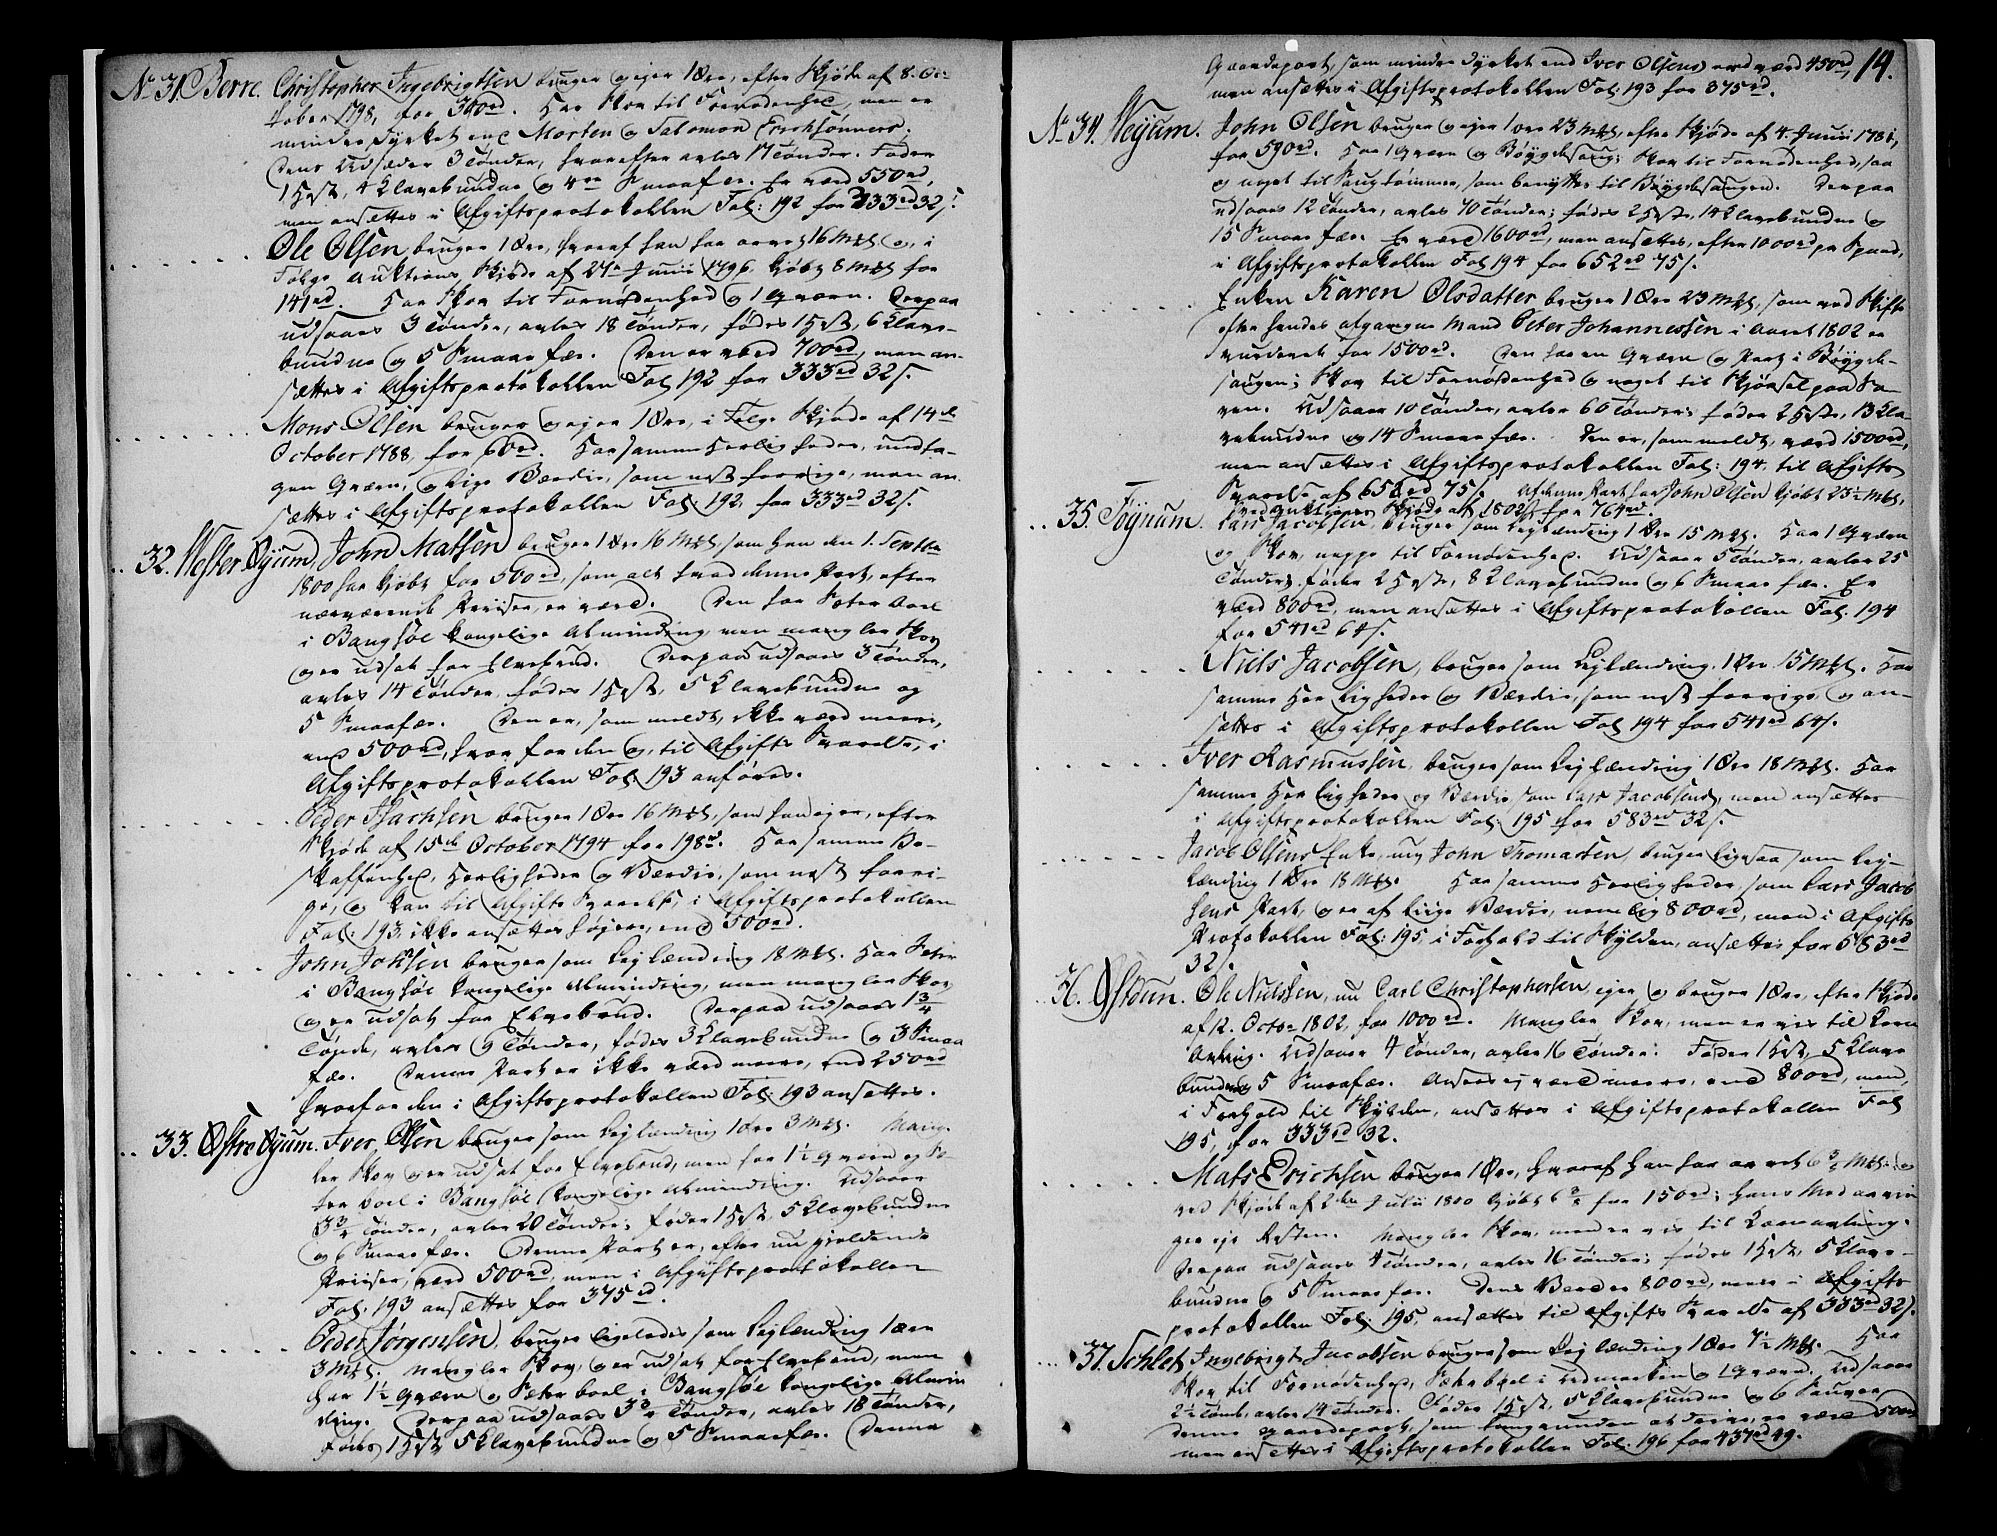 No 31. Berre. Christopher Ingebrigtsen bruger og ejer 1 Øre, efter Skjøde af 8. Oc-
tober 1798, for 300rd. Har Skov til Fornødenhed, men er
mindre dyrket end Morten og Salomon Erichsønners.
Dens Udsæd er 3 Tønder, hvorefter avles 17 Tønder. Føder
1 Hest, 4 Klavebundne og 4re Smaafæ. Er værd 550rd,
men ansættes i Afgiftsprotokollen Fol: 192 for 333rd 32 s.
Ole Olsen bruger 1 Øre, hvoraf han har arvet 16 Mk og, i
Følge Auktions Skjøde af 27de Junii 1796 kjøbt 8 Mk for
141rd. Har Skov til Fornødenhed og 1 Qværn. Derpaa
udsaaes 3 Tønder, avles 18 Tønder, fødes 1 Hest, 6 Klave-
bundne og 5 Smaafæ. Den er værd 700rd, men an-
sættes i Afgiftsprotokollen Fol. 192 for 333rd 32 s.
Mons Olsen bruger og ejer 1 Øre, i Følge Skjøde af 14de
October 1788, for 60rd. Har samme Herligheder, undta-
gen Qværn, og lige Værdie, som næst forrige, men an-
sættes i Afgiftsprotokollen Fol. 192, for 333rd 32 s.
32. Vester Øyum, John Matsen bruger 1 Øre 16 Mk, som han den 1. Septbr
1800 har kjøbt for 500rd, som alt hvad denne Part, efter
nærværende Priiser, er værd. Den har Sæter boel
i Bangsøe kongelige Alminding, men mangler Skov
og er udsat for Elvebrud. Derpaa udsaaes 3 Tønder,
avles 14 Tønder, fødes 1 Hest, 5 Klavebundne og
5 Smaafæ. Den er, som meldt, ikke værd meere,
end 500rd, hvorfor den og, til Afgifts Svarelse, i
Afgiftsprotokollen Fol. 193 anføres.
Peder Isachsen bruger 1 Øre 16 Mk, som han ejer, efter
Skjøde af 15de October 1794 for 198rd. Har samme Be-
skaffenhed, Herligheder og Værdie, som næst forri-
ge, og kan til Afgifts Svarelse, i Afgiftsprotokollen
Fol. 193, ikke ansættes højere, end 500rd.
John Johsen bruger som Lejlænding 18 Mk. Har Seter
i Bangsøe kongelige Alminding, men mangler Skov
og er udsat for Elvebrud. Derpaa udsaaes 1 3/4
Tønde, avles 9 Tønder, fødes 3 Klavebundne og 3 Smaa
fæ. Denne Part er ikke værd meere, end 250rd
hvorfor den i Afgiftsprotokollen Fol. 193 ansættes.
33. Østre Øyum. Iver Olsen bruger som Lejlænding 1 Øre 3 Mk. Mang-
ler Skov og er udsat for Elvebrud, men har 1 1/2 Qværn og Sæ-
ter boel i Bangsøe kongelige Alminding. Udsaaer
3 3/4 Tønder, avler 20 Tønder; føder 1 Hest, 5 Klavebundne
og 6 Smaafæ. Denne Part er, efter nu gjeldende
Priiser, værd 500rd, men i Afgiftsprotokollen
Fol. 193 ansættes for 375rd.
Peder Jørgensen, bruger ligeledes som Lejlænding 1 Øre
3 Mk. Mangler Skov, og er udsat for Elvebrud, men
har 1 1/2 Qværn og Sæter boel i Bangsøe kongelige Almin
ding. Derpaa udsaaes 3 3/4 Tønder, avles 18 Tønder,
fødes 1 Hest 5 Klavebundne og 5 Smaafæ. Denne
14.
Gaardepart, som mindre dyrket end Iver Olsens, er værd 450rd,
men ansættes i Afgiftsprotokollen Fol. 193 for 375rd.
No 34. Veyum. John Olsen bruger og ejer 1 Øre 23 Mk, efter Skjøde af 4. Junii 1781,
for 590rd. Har 1 Qværn og Bøygdesaug; Skov til Fornødenhed, saa
og noget til Saugtømmer, som benyttes til Bøygdesaugen. Derpaa
udsaaes 12 Tønder, avles 70 Tønder; fødes 2 Heste, 14 Klavebundne og
15 Smaafæ. Er værd 1600rd, men ansættes, efter 1000rd pr Spand,
i Afgiftsprotokollen Fol. 194 for 652rd 75 s.
Enken Karen Olsdatter bruger 1 Øre 23 Mk, som ved Skifte
efter hendes afgangne Mand Peter Johannessen i Aaret 1802 er
vurderet for 1500rd. Den har en Qværn og Part i Bøygde-
saugen; Skov til Fornødenhed og noget til Skjørsel paa Sa
gen. Udsaaer 10 Tønder, avler 60 Tønder; føder 2 Heste, 13 Kla-
vebundne og 14 Smaafæ. Den er, som meldt, værd 1500rd,
men ansættes i Afgiftsprotokollen Fol: 194, til Afgifts
Svarelse af 652rd 75 s. Af denne Part har John Olsen kjøbt 23 1/2 Mk,
ved Auktions Skjøde af 1802 for 764rd.
35. Føynum. Lars Jacobsen, bruger som Lejlænding 1 Øre 15 Mk. Har 1 Qværn
og Skov, neppe til Fornødenhed. Udsaaer 5 Tønder, avler 25
Tønder; føder 2 Heste, 8 Klavebundne og 6 Smaafæ. Er
værd 800rd, men ansættes i Afgiftsprotokollen Fol. 194
for 541rd 64 s.
Niels Jacobsen, bruger som Lejlænding 1 Øre 15 Mk. Har
samme Herligheder og Værdie, som næst forrige og an-
sættes i Afgiftsprotokollen Fol. 194 for 541rd 64 s.
Iver Rasmussen, bruger som Lejlænding 1 Øre 18 Mk. Har
samme Herligheder og Værdie som Lars Jacobsens, men ansættes
i Afgiftsprotokollen Fol. 195 for 583rd 32 s.
Jacob Olsens Enke, nu John Thomassen, bruger ligesaa som Lej-
lænding 1 Øre 18 Mk. Har samme Herligheder som Lars Jacob
sens Part, og er af liige Værdie, nemlig 800rd, men i Afgifts
Protokollen Fol: 195, i Forhold til Skylden, ansættes for 583rd
32 s.
36. Østbun. Ole Nielssen, nu Carl Christophersen, ejer og bruger 1 Øre, efter Skjøde
af 12. Octor 1802, for 1000rd. Mangler Skov, men er vis til Korn
Avling. Udsaaer 4 Tønder, avler 16 Tønder. Føder 1 Hest, 5 Klave
bundne og 5 Smaafæ. Ansees ej værd meere, end 800rd, men,
i Forhold til Skylden, ansættes i Afgiftsprotokollen Fol
195, for 333rd 32.
Mats Erichsen bruger 1 Øre, hvoraf han har arvet 6 3/4 Mk: og
ved Skjøde af 2den Julii 1800 kjøbt 6 3/4 for 150rd; hans Medarvin
ger eje Resten. Mangler Skov, men er vis til Kornavling.
Derpaa udsaaes 4 Tønder, avles 16 Tønder; fødes 1 Hest, 5 Klave-
bundne og 5 Smaafæ. Dens Værdie 800rd, men i Afgifts
protokollen Fol: 195, ansættes til Afgifts Svarelse af 333rd 32 s.
37. Schlet, Ingebrigt Jacobsen bruger som Lejlænding 1 Øre 7 1/2 Mk. Har
Skov til Fornødenhed, Sæterboel i Udmarken og 1 Qværn. Udsaaer
2 1/2 Tønde, avler 14 Tønder. Føder 1 Hest, 5 Klavebundne og 6 Smaafæ
denne Gaardepart, som tungvunden at drive, er værd 500rd
men ansættes i Afgiftsprotokollen Fol. 196 for 437rd 49.